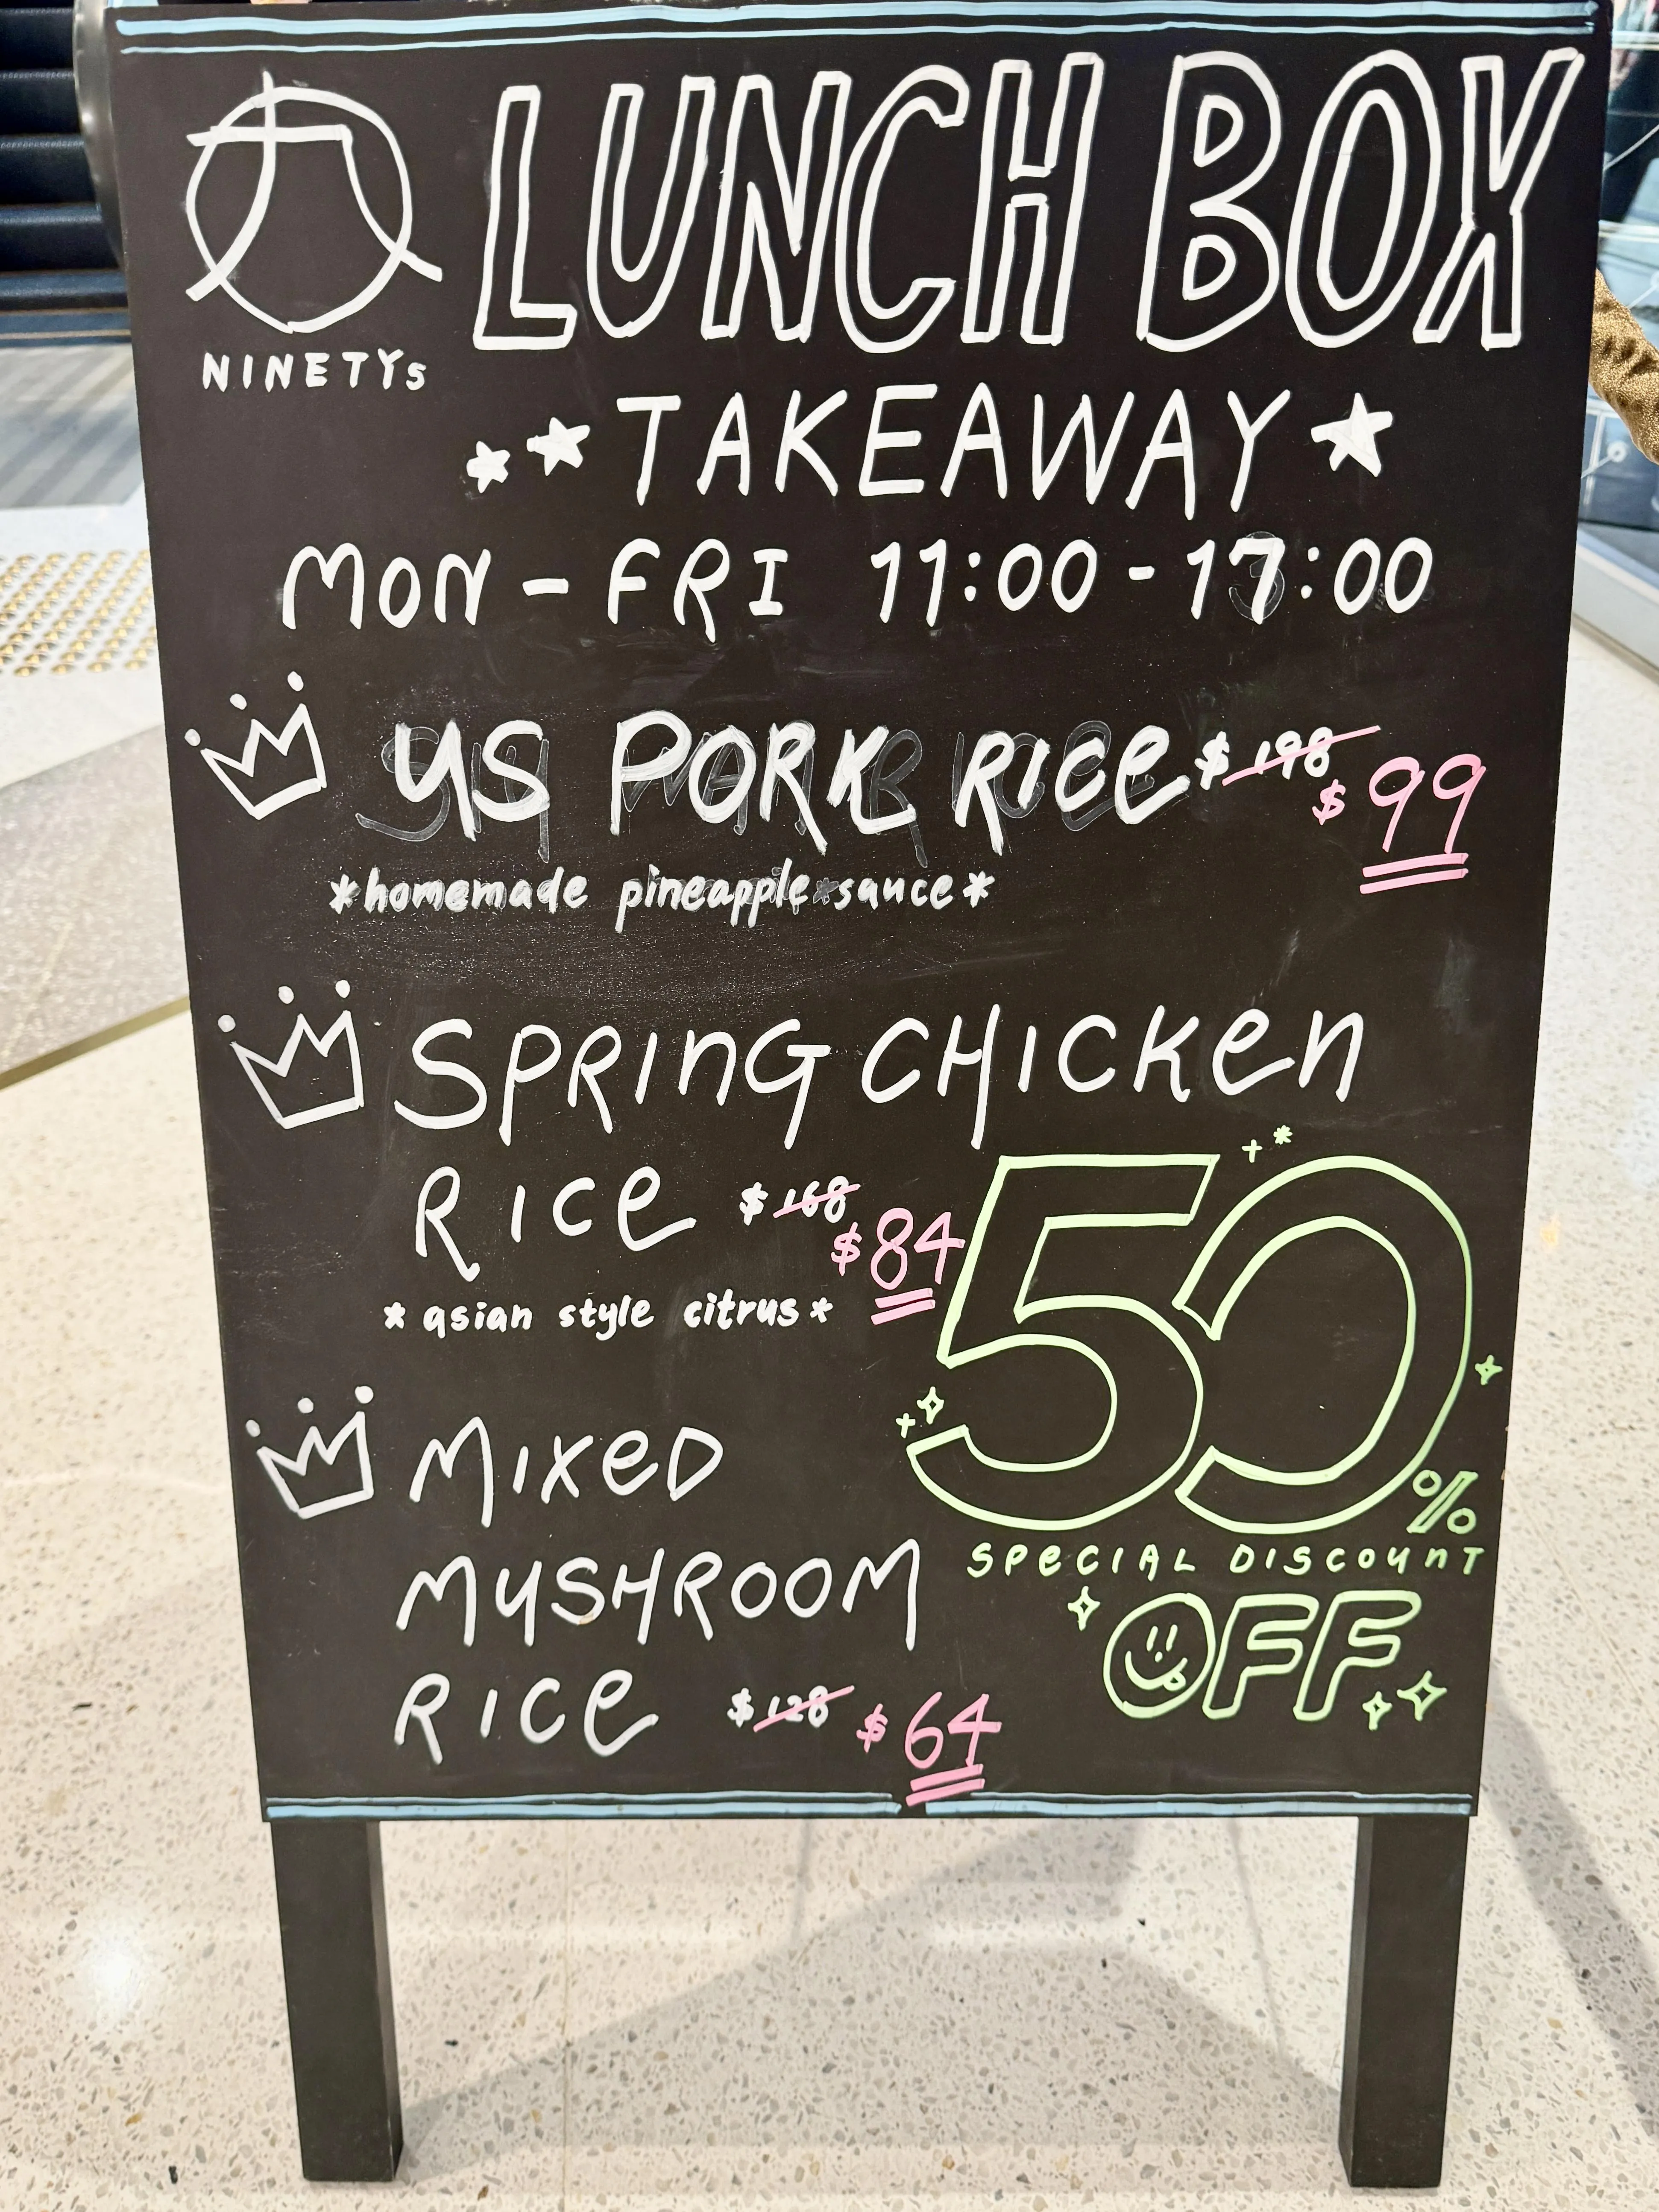 LUNCH BOX
NINETYs
TAKEAWAY
MON - FRI 11:00 - 17:00
US PORK RICE $198 $99
*homemade pineapple sauce*
SPRING CHICKEN
RICE $168 $84
*asian style citrus*
MIXED
MUSHROOM
RICE $128 $64
50%
SPECIAL DISCOUNT
OFF